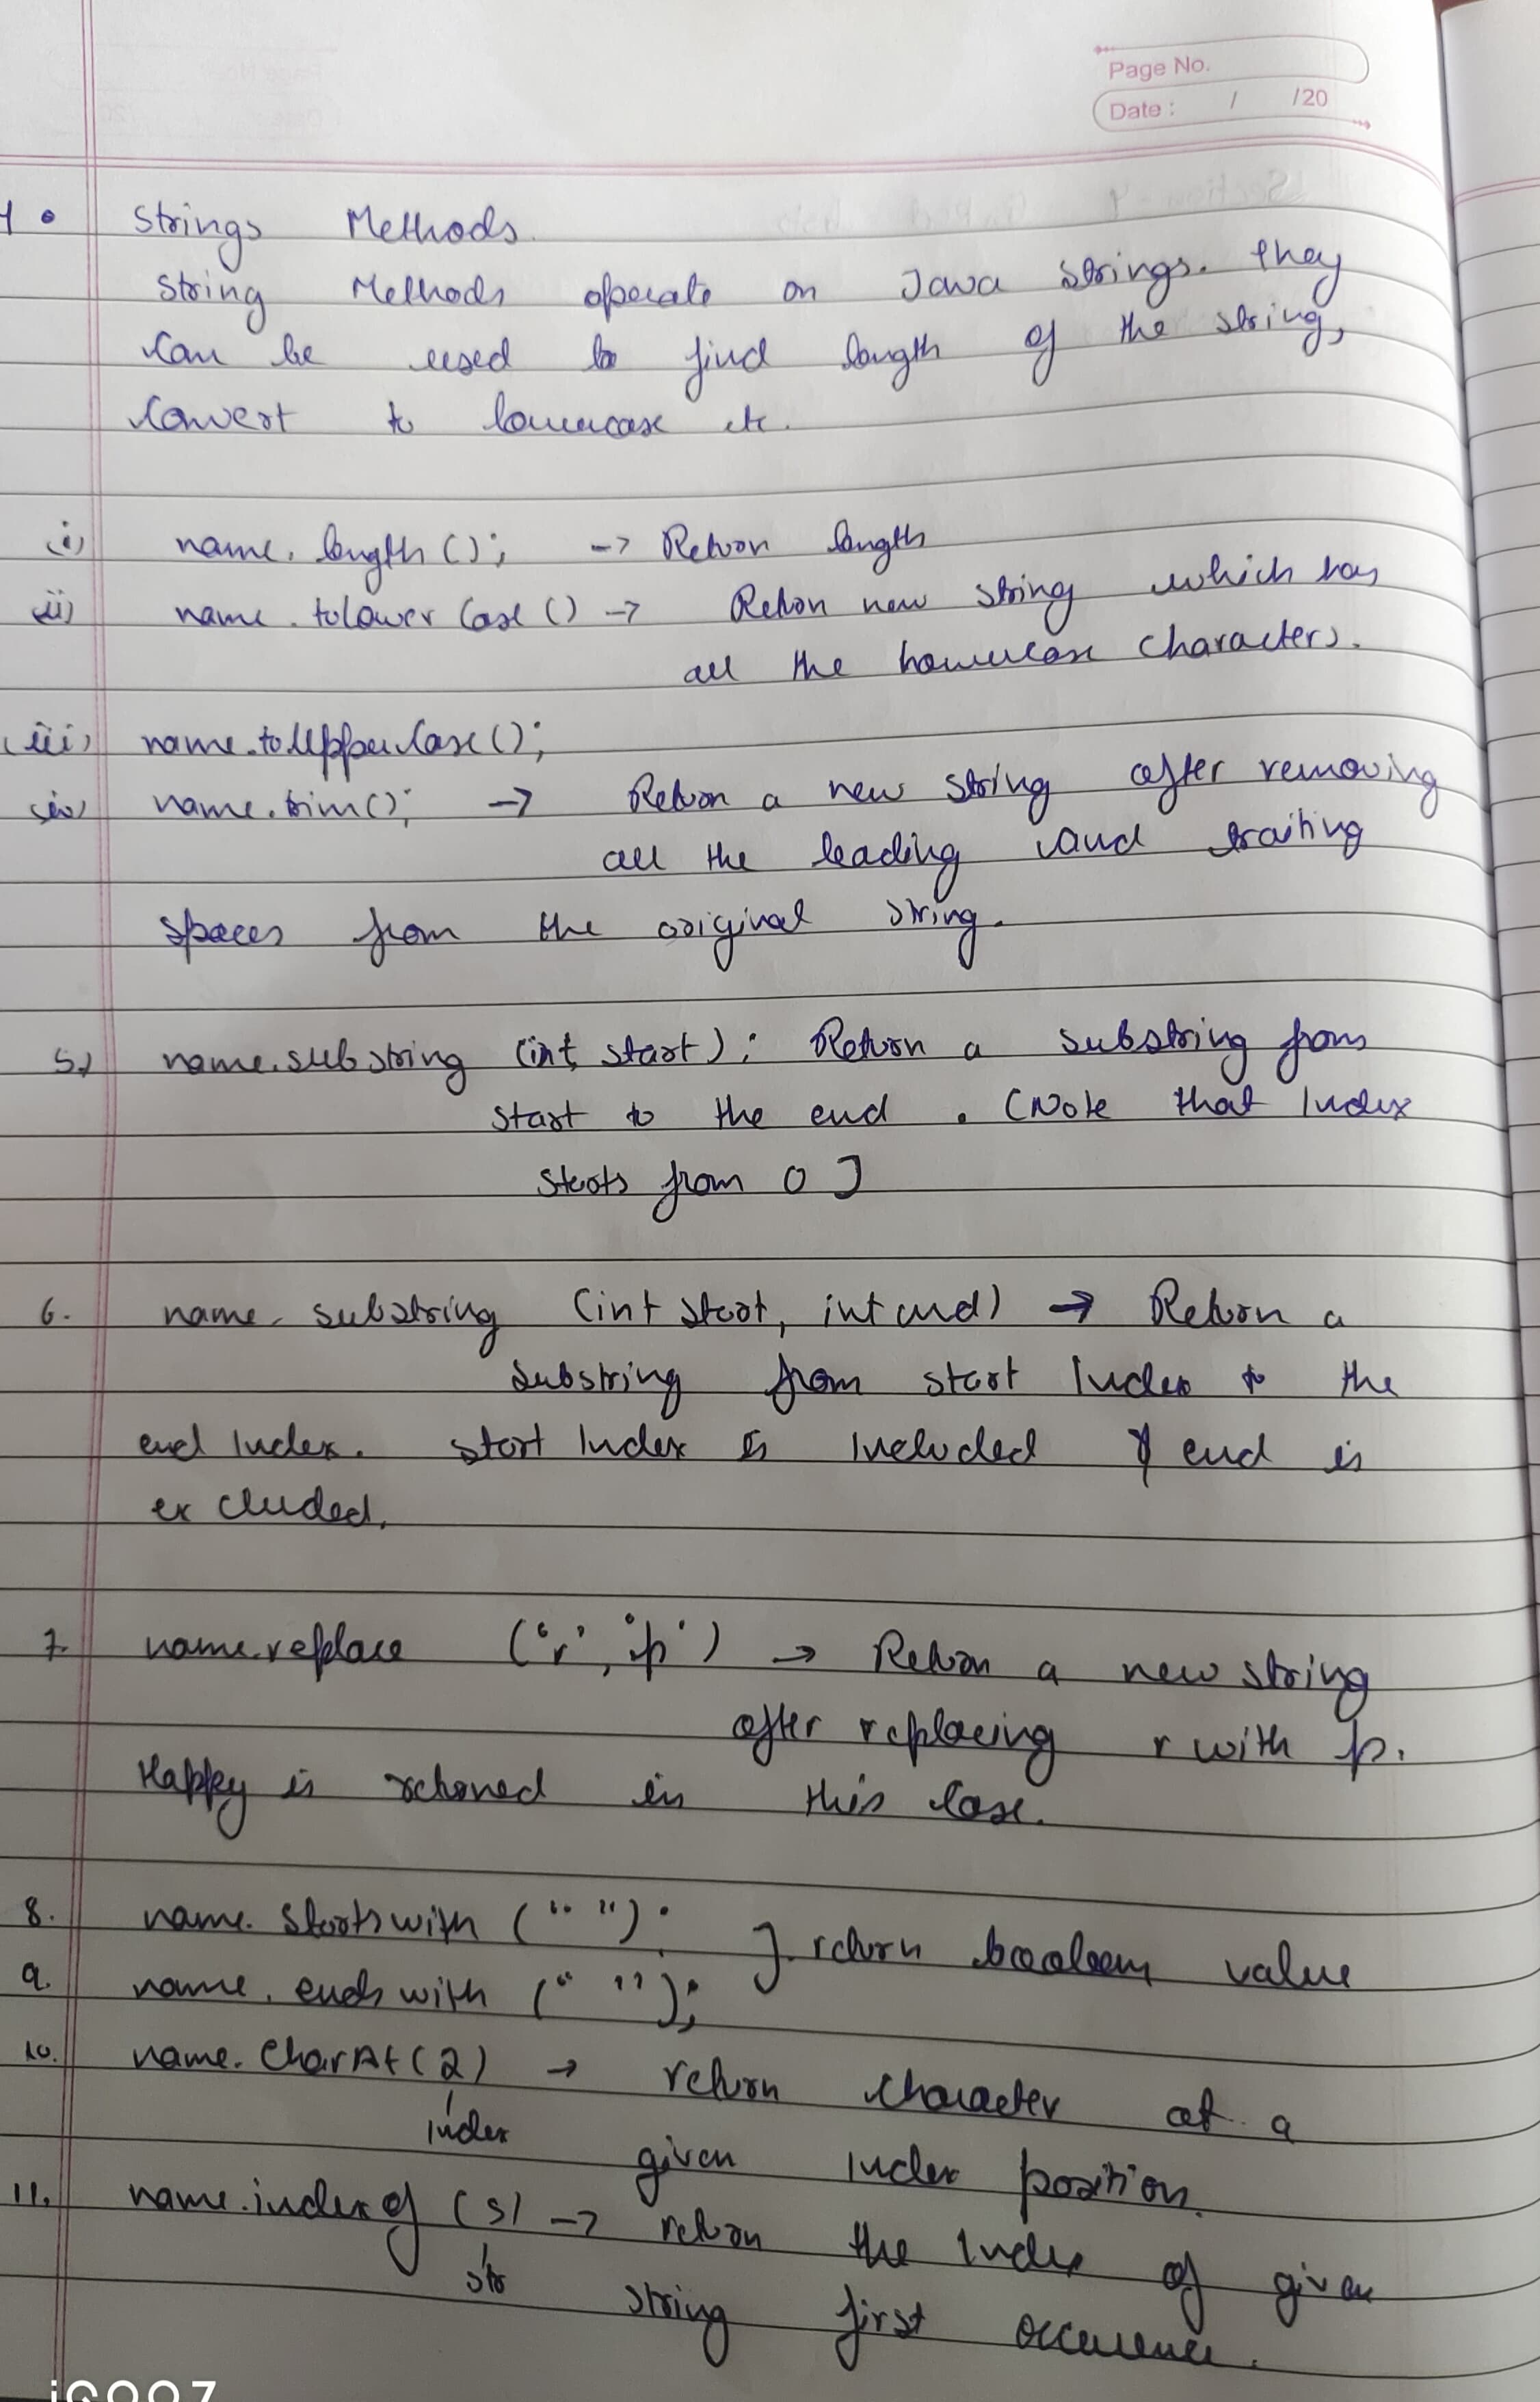 Page No.
Date : / /20
1 • Strings Methods.
String Methods operate on Java Strings. They
can be used to find length of the string,
Convert to lowercase etc.
(i) name. length (); -> Return length
(ii) name. toLower Case () -> Return new string which has
all the lowercase characters.
(iii) name.toUpperCase();
(iv) name.trim(); -> Return a new string after removing
all the leading and trailing
spaces from the original string.
5.) name.substring (int start): Return a substring from
start to the end . (Note that Index
starts from 0 ]
6. name. substring (int start, int end) -> Return a
substring from start Index to the
end Index. start Index is Included & end is
ex cluded.
7. name.replace ('r', 'p') -> Return a new string
after replacing r with p.
Happy is returned in this case.
8. name. Startswith (" "): } return boolean value
9. name. ends with (" ");
10. name. CharAt(2) -> return character at a
index given Index position.
11. name.index of (s) -> return the Index of given
str string first occurence.
iQOO Z